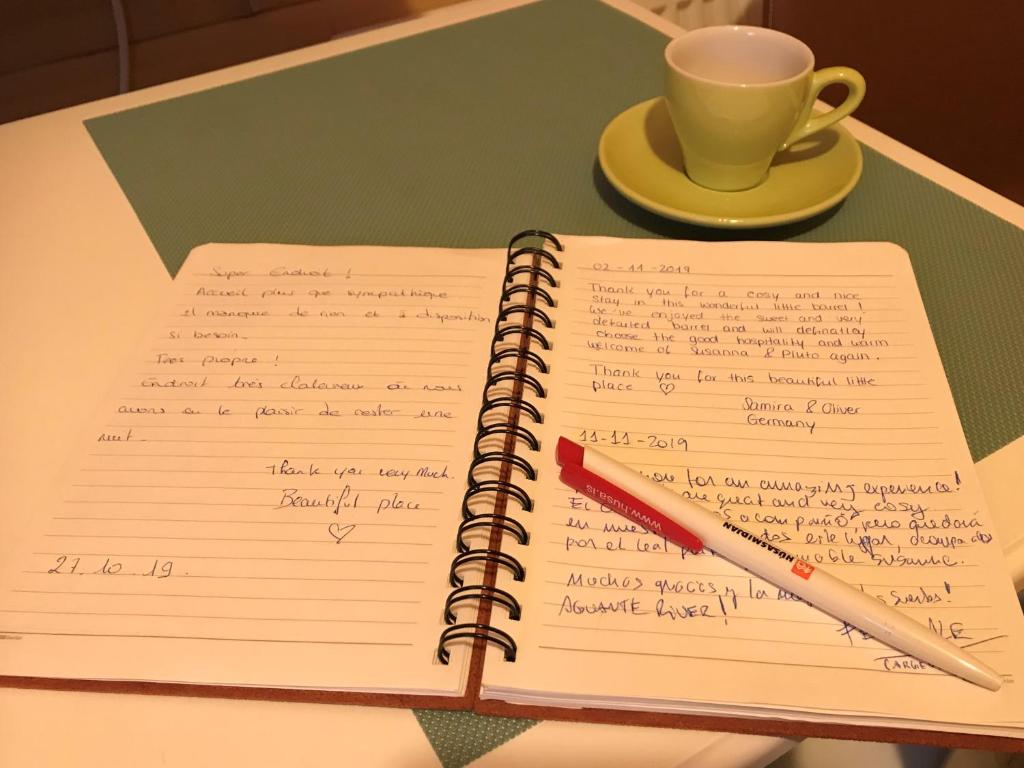 Super Endroit !
Accueil plus que sympathique
il manque de rien et à disposition
si besoin.
Très propre !
Endroit très chaleureux où nous
avons eu le plaisir de rester une
nuit.
Thank you very much.
Beautiful place
♡
27.10.19.
02-11-2019
Thank you for a cosy and nice
stay in this wonderful little barrel!
We've enjoyed the sweet and very
detailed barrel and will definatley
choose the good hospitality and warm
welcome of Susanna & Pluto again.
Thank you for this beautiful little
place ♡
Samira & Oliver
Germany
11-11-2019
for an amazing experience!
are great and very cosy
El acompañó, pero quedará
en este lugar, ocupado
por el leal Susanne.
Muchas gracias y la
AGUANTE RIVER!!
www.husa.is
HÚSASMIÐJAN